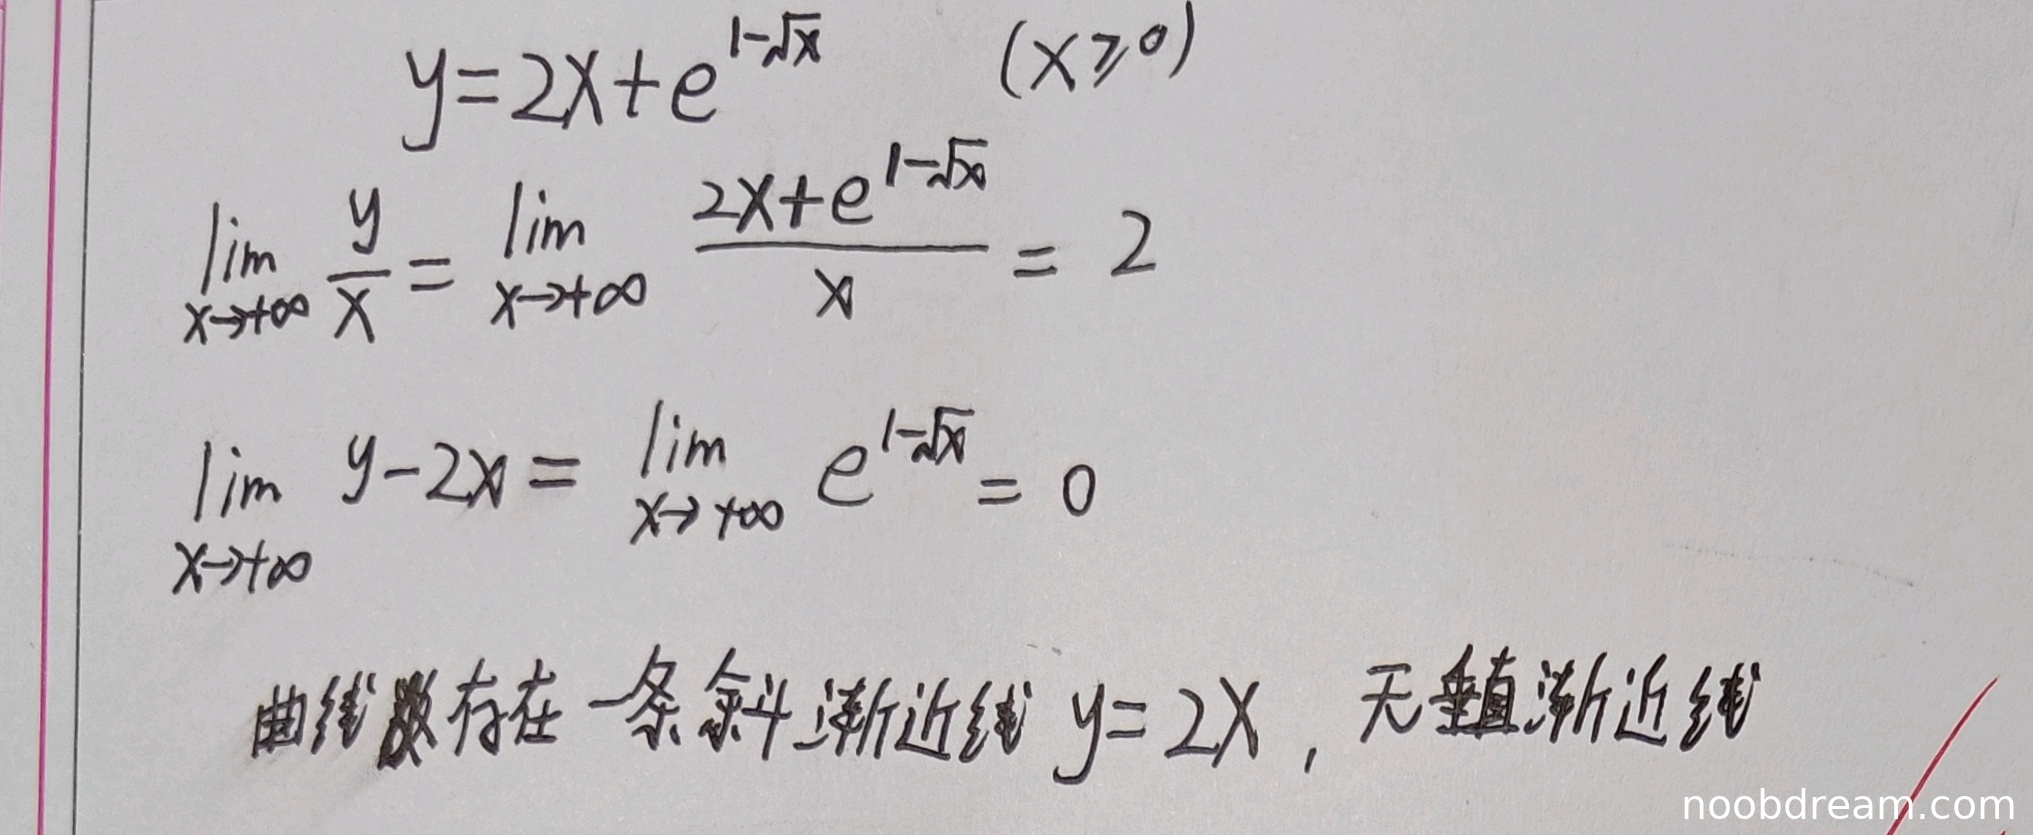 y=2x+e^{1-√x} (x≥0)
lim_{x→+∞} y/x = lim_{x→+∞} (2x+e^{1-√x})/x = 2
lim_{x→+∞} y-2x = lim_{x→+∞} e^{1-√x} = 0
曲线存在一条斜渐近线 y=2x , 无垂直渐近线
noobdream.com